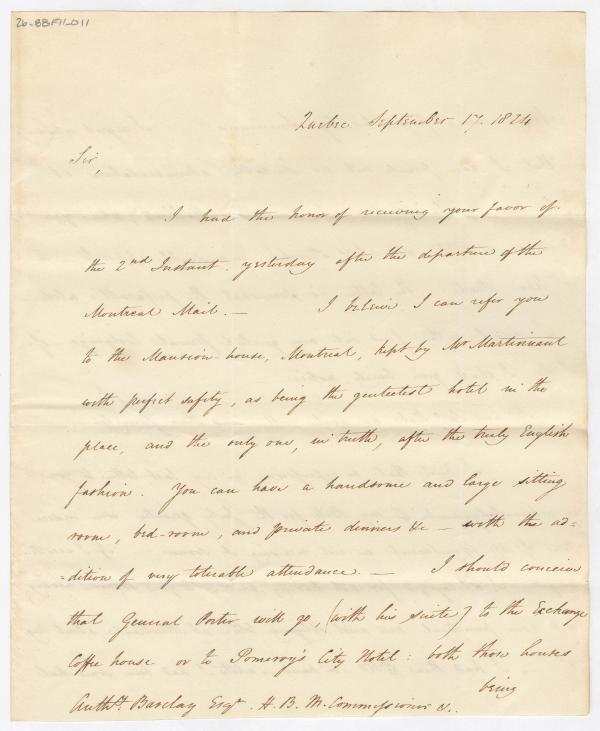 26-BBF11-011
Quebec September 17. 1824
Sir,
I had the honor of receiving your favor of
the 2nd Instant. yesterday after the departure of the
Montreal Mail. — I beleive I can refer you
to the Mansion-house, Montreal, kept by Mr Martinnant
with perfect safety, as being the genteelest hotel in the
place, and the only one, in truth, after the truly English
fashion. You can have a handsome and large sitting
room, bed-room, and private dinners &c — with the ad=
=dition of very tolerable attendance. — I should conceive
that General Porter will go, (with his suite) to the Exchange
Coffee house or to Pomeroy's City Hotel: both those houses
being
Anthy. Barclay Esqr. H. B. M. Commissioner &c.